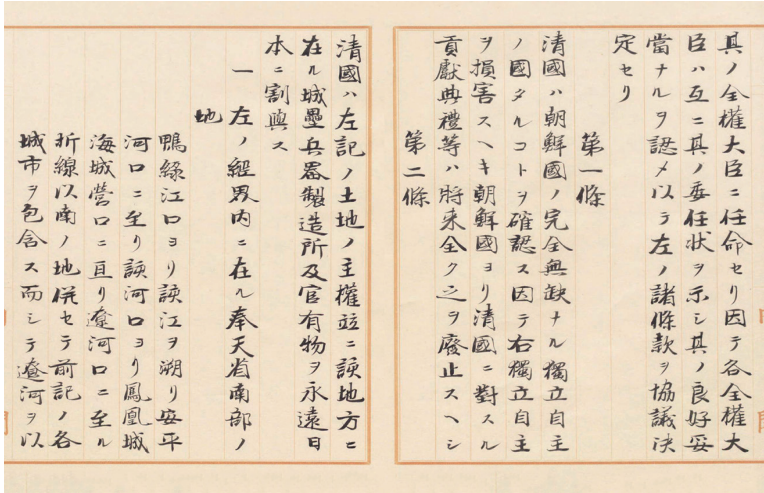 其ノ全權大臣ニ任命セリ因テ各全權大
臣ハ互ニ其ノ委任狀ヲ示シ其ノ良好妥
當ナルヲ認メ以テ左ノ諸條款ヲ協議決
定セリ
第一條
淸國ハ朝鮮國ノ完全無缺ナル獨立自主
ノ國タルコトヲ確認ス因テ右獨立自主
ヲ損害スヘキ朝鮮國ヨリ淸國ニ對スル
貢獻典禮等ハ將來全ク之ヲ廢止スヘシ
第二條
淸國ハ左記ノ土地ノ主權竝ニ該地方ニ
在ル城壘兵器製造所及官有物ヲ永遠日
本ニ割與ス
一 左ノ經界内ニ在ル奉天省南部ノ
地
鴨綠江口ヨリ該江ヲ溯リ安平
河口ニ至リ該河口ヨリ鳳凰城
海城營口ニ亘リ遼河口ニ至ル
折線以南ノ地併セテ前記ノ各
城市ヲ包含ス而シテ遼河ヲ以